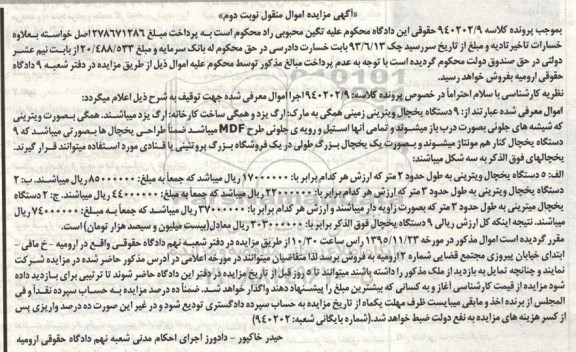 «آگهی مزایده اموال منقول نوبت دوم»
بموجب پرونده کلاسه ۹۴۰۲۰۲/۹ حقوقی این دادگاه محکوم علیه تگین محبوبی راد محکوم است به پرداخت مبلغ ۲۷۸۶۷۱۲۸۶ اصل خواسته بعلاوه
خسارات تاخیر تادیه و مبلغ از تاریخ سررسید چک ۹۳/۶/۱۳ بابت خسارت دادرسی در حق محکوم له بانک سرمایه و مبلغ ۲۰/۴۸۸/۵۳۳ از بابت نیم عشر
دولتی در حق صندوق دولت محکوم گردیده است با توجه به عدم پرداخت مبالغ مذکور توسط محکوم علیه اموال ذیل از طریق مزایده در دفتر شعبه ۹ دادگاه
حقوقی ارومیه بفروش خواهد رسید.
نظریه کارشناسی با سلام احتراماً در خصوص پرونده کلاسه: ۹۴۰۲۰۲/۹ اجرا اموال معرفی شده جهت توقیف به شرح ذیل اعلام میگردد:
اموال معرفی شده عبارتند از: ۹ دستگاه یخچال ویترینی زمینی همگی به مارک: ارگ یزد و همگی ساخت کارخانه: ارگ یزد میباشند. همگی بصورت ویترینی
که شیشه های جلوئی بصورت درب باز میشوند و تمامی آنها استیل و رویه ی جلوئی طرح MDF میباشد ضمناً طراحی یخچال ها بصورتی میباشد که ۹
دستگاه یخچال کنار هم مونتاژ میشوند و بصورت یک یخچال بزرگ طولی در یک فروشگاه بزرگ پروتئینی یا قنادی مورد استفاده میتوانند قرار گیرند.
یخچالهای فوق الذکر به سه شکل میباشند:
الف: ۵ دستگاه یخچال ویترینی به طول حدود ۲ متر که ارزش هر کدام برابر با: ۱۷۰۰۰۰۰۰ ریال میباشد که جمعاً به مبلغ: ۸۵۰۰۰۰۰۰ ریال میباشند. ب: ۲
دستگاه یخچال ویترینی به طول حدود ۳ متر که ارزش هر کدام برابر با: ۲۲۰۰۰۰۰۰ ریال میباشد که جمعاً به مبلغ: ۴۴۰۰۰۰۰۰ ریال میباشند. ج: ۲ دستگاه
یخچال میترینی به طول حدود ۳ متر که بصورت زاویه دار میباشند و ارزش هر کدام برابر با: ۳۷۰۰۰۰۰۰ ریال میباشد که جمعاً به مبلغ: ۷۴۰۰۰۰۰۰ ریال
میباشند. نتیجه اینکه کل ارزش ریالی ۹ دستگاه یخچال فوق الذکر برابر با: ۲۰۳۰۰۰۰۰۰ ریال معادل(بیست میلیون و سیصد هزار تومان) است.
مقرر گردیده است اموال مذکور در مورخه ۱۳۹۵/۱۱/۲۳ راس ساعت ۱۰/۳۰ از طریق مزایده در دفتر شعبه نهم دادگاه حقوقی واقع در ارومیه – خ مافی –
ابتدای خیابان پیروزی مجتمع قضایی شماره ۲ ارومیه به فروش برسد لذا متقاضیان میتوانند در مورخه اعلامی در آدرس مذکور حاضر شده در مزایده شرکت
نمایند و چنانچه تمایل به بازدید از ملک مذکور را داشته باشند میتوانند تا ۵ روز قبل از تاریخ مزایده در دفتر این دادگاه حاضر شوند تا ترتیبی برای بازدید داده
شود مزایده از قیمت کارشناسی آغاز و به کسانی که بیشترین مبلغ را پیشنهاد دهند واگذار خواهد شد. ضمناً ده درصد مزایده به حساب سپرده نقداً و فی
المجلس از برنده اخذ و مابقی میبایست ظرف مهلت یکماه از تاریخ مزایده به حساب سپرده دادگستری تودیع شود و در غیر این صورت ده درصد واریزی پس
از کسر هزینه های مزایده به نفع دولت ضبط خواهد شد.(شماره بایگانی شعبه: ۹۴۰۲۰۲)
حیدر خاکپور – دادورز اجرای احکام مدنی شعبه نهم دادگاه حقوقی ارومیه